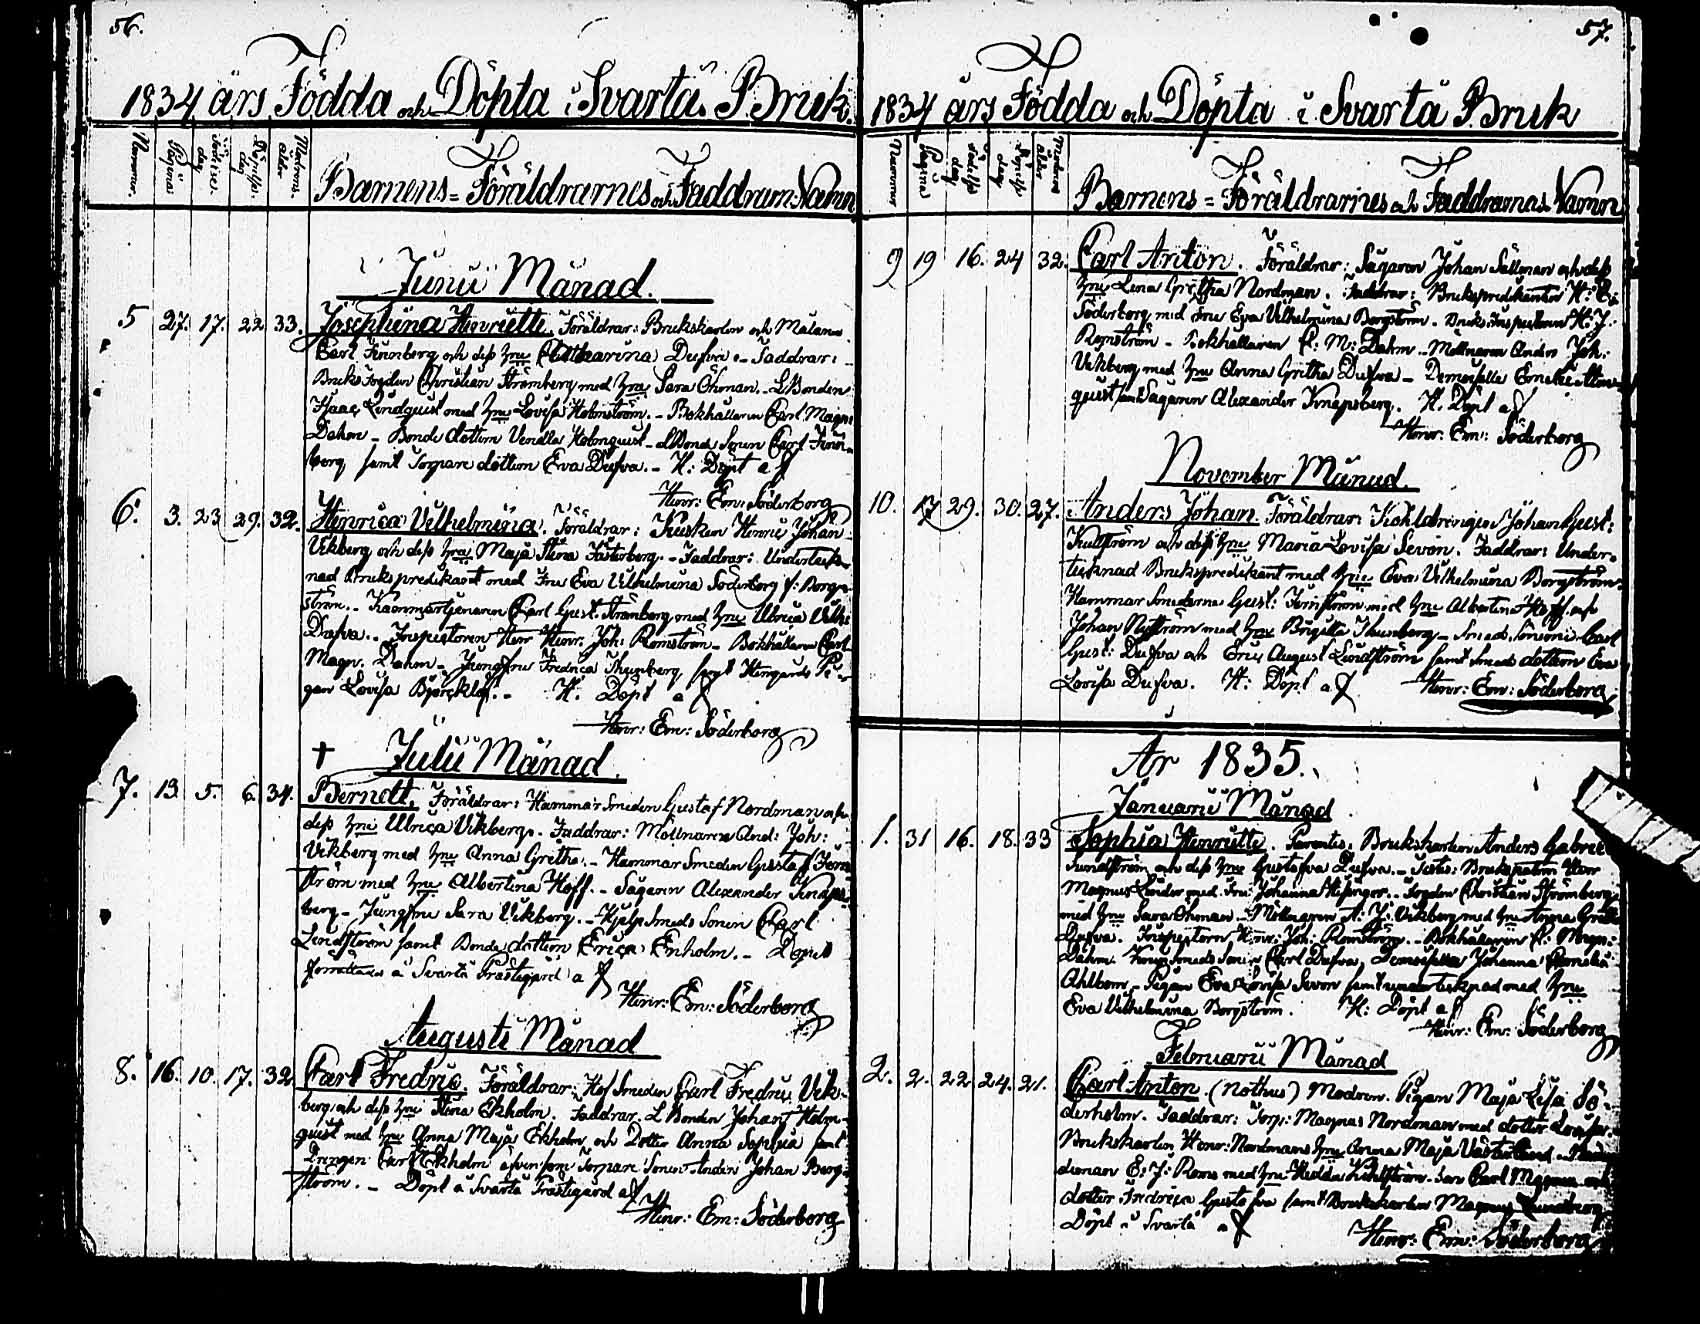 56.
1834 års Födda och Döpta i Svartå Bruk.
Nummer.
Pagina
Födelse dag
Döpelse dag
Modrens ålder
Barnens= Föräldrarnes och Faddrarnas Namn
Junii Månad.
5 27. 17. 22 33. Josephina Henriette. Föräldrar: Brukskarlen och Målaren
Carl Funberg och dess hustru Catharina Dufva. - Faddrar:
Bruksfogden Christian Strömberg med hustru Sara Öhman. - L Bonden
Isaac Lindquist med hustru Lovisa Holmström. - Bokhållaren Carl Magn:
Dahm - Bonde dottern Vendla Holmquist - L Bonde Sonen Carl
berg, samt Torpare dottern Eva Dufva. - H: Döpt af
Henr: Em: Söderborg
6. 3. 23 29. 32. Henrica Vilhelmina. Föräldrar: Kusken Henric Johan
Vikberg och dess hustru Maja Stina Fasterberg. - Faddrar: Underteck-
nad Brukspredikant med Fru Eva Vilhelmina Söderborg f: Borg-
ström. - Kammartjenaren Carl Gust. Strömberg med hustru Ulrica Vilh:
Dufva. - Inspectoren Herr Henr. Joh: Romström - Bokhållaren Carl
Magn. Dahm - Jungfru Fredrica Thunberg samt Herrgårds Pi-
gan Lovisa Björcklöf. - H. Döpt af
Henr: Em: Söderborg
† Julii Månad.
7. 13. 5. 6. 34. Berndt. Föräldrar: Hammar Smeden Gustaf Nordman och
dess hustru Ulrica Vikberg. Faddrar: Möllnaren And: Joh:
Vikberg med hustru Anna Gretha. - Hammar Smeden Gustaf Fern
ström med hustru Albertina Hoff. - Sågaren Alexander Knaps-
berg - Jungfru Sara Vikberg. - Hjelp Smeds Sonen Carl
Lindström samt Bonde dottern Erica Enholm. - Dopet
förrättades å Svartå Prästegård af
Henr: Em: Söderborg
Augusti Månad
8. 16. 10. 17. 32 Carl Fredric. Föräldrar: Hof Smeden Carl Fredric Vik-
berg och dess hustru Stina Ekholm. Faddrar. L Bonden Johan Holm-
quist med hustru Anna Maja Ekholm och Dotter Anna Sophia samt
Drengen Carl Ekholm äfvensom Torpare Sonen Anders Johan Berg-
ström. - Döpt å Svartå Prästegård af
Henr: Em: Söderborg
57.
1834 års Födda och Döpta i Svartå Bruk
Nummer
Pagina
Födelse dag
Döpelse dag
Modrens ålder
Barnens = Föräldrarnes och Faddrarnas Namn
9 19 16. 24 32. Carl Anton. Föräldrar: Sågaren Johan Sällman och dess
hustru Lena Gretha Nordman. Faddrar: Brukspredikanten H: E:
Söderborg med Fru Eva Vilhelmina Borgström. Bruks Inspectoren H: J:
Romström - Bokhållaren C: M: Dahm - Möllnaren Anders Joh:
Vikberg med hustru Anna Gretha Dufva - Demoiselle
quist samt Sågaren Alexander Knapsberg. H. Döpt af
Henr: Em: Söderborg
November Månad.
10. 17 29. 30. 27. Anders Johan. Föräldrar: Kohldrengen Johan Gust:
Kullström och dess hustru Maria Lovisa Sevón. Faddrar: Under-
tecknad Brukspredikant med hustru Eva Vilhelmina Borgström -
Hammar Smederne Gust: Fernström med hustru Albertina Hoff och
Johan Nyström med hustru Brigitta Thunberg - Smeds Sönerne Carl
Gust: Dufva och Eric August Lindström samt Smeds dottern Eva
Lovisa Dufva. H: Döpt af Henr: Em: Söderborg
År 1835.
Januarii Månad
1. 31 16. 18. 33 Sophia Henriette. Parentes: Brukskarlen Anders Gabriel
Sundström och dess hustru Gustafva Dufva. - Testes: Brukspatron Herr
Magnus Linder med Fru Johanna Hisinger. - Fogden Christian Strömberg
med hustru Sara Öhman - Möllnaren A: J: Vikberg med hustru Anna Greta
Dufva. Inspectorn Henr: Joh: Romström. - Bokhållaren C: Magn:
Dahm. Smeds Sonen Carl Dufva, Demoiselle Johanna Cornelia
Ahlbom, Pigan Eva Lovisa Sevon samt undertecknad med hustru
Eva Vilhelmina Borgström. H: Döpt af
Henr: Em: Söderborg
Februarii Månad
2. 2. 22 24. 21. Carl Anton (nothus) Modren: Pigan Maja Lisa Sö-
derholm. Faddrar: Torp: Magnus Nordman med dotter Lovisa.
Brukskarlen Henr: Nordmans hustru Anna Maja Västerlund -
denan E: J: Roms med hustru Hedda Kullström. Son Carl Magnus och
dotter Fredrica Gustafva samt Brukskarlen Magnus Lundberg.
Döpt i Svartå af
Henr: Em: Söderborg